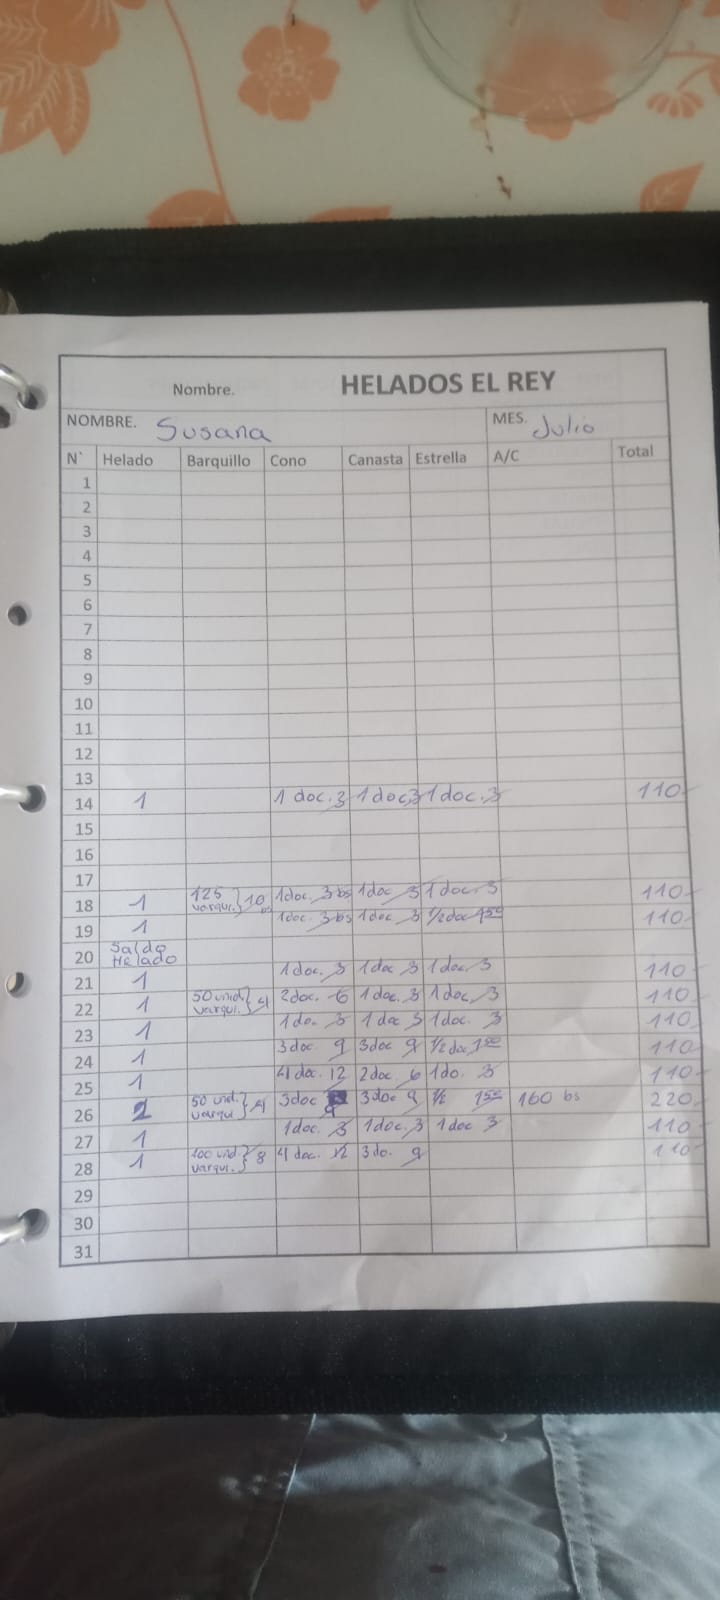 Nombre. HELADOS EL REY
NOMBRE. Susana MES. Julio
N` Helado Barquillo Cono Canasta Estrella A/C Total
1
2
3
4
5
6
7
8
9
10
11
12
13
14 1 1 doc. 3 1 doc 3 1 doc. 3 110-
15
16
17
18 1 125 varqui. } 10 bs 1doc. 3 bs 1doc 3 1 doc. 3 110-
19 1 1doc. 3 bs 1doc 3 1/2 doc 150 110-
20 Saldo Helado
21 1 1 doc. 3 1 doc 3 1 doc. 3 110-
22 1 50 unid. varqui. } 4 2 doc. 6 1 doc. 3 1 doc, 3 110-
23 1 1 do. 3 1 doc 3 1 doc. 3 110-
24 1 3 doc 9 3 doc 9 1/2 doc 1 50 110
25 1 4 doc. 12 2 doc 6 1 do. 3 110-
26 2 50 und. varqui } 4 3 doc 9 3 doc 9 1/2 1 50 160 bs 220-
27 1 1 doc. 3 1 doc, 3 1 doc 3 110
28 1 100 und. varqui. } 8 4 doc. 12 3 do. 9 110
29
30
31